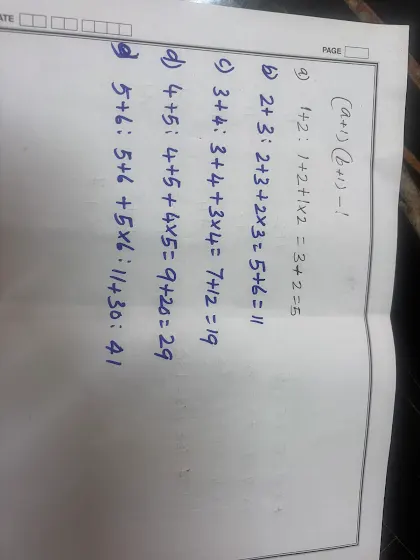 DATE
PAGE
(a+1) (b+1) - 1
a) 1+2 : 1+2+1×2 = 3+2=5
b) 2+3 : 2+3+2×3= 5+6 = 11
c) 3+4 : 3+4+3×4= 7+12 = 19
d) 4+5 : 4+5+4×5= 9+20 = 29
5+6 : 5+6 +5×6 : 11+30 : 41